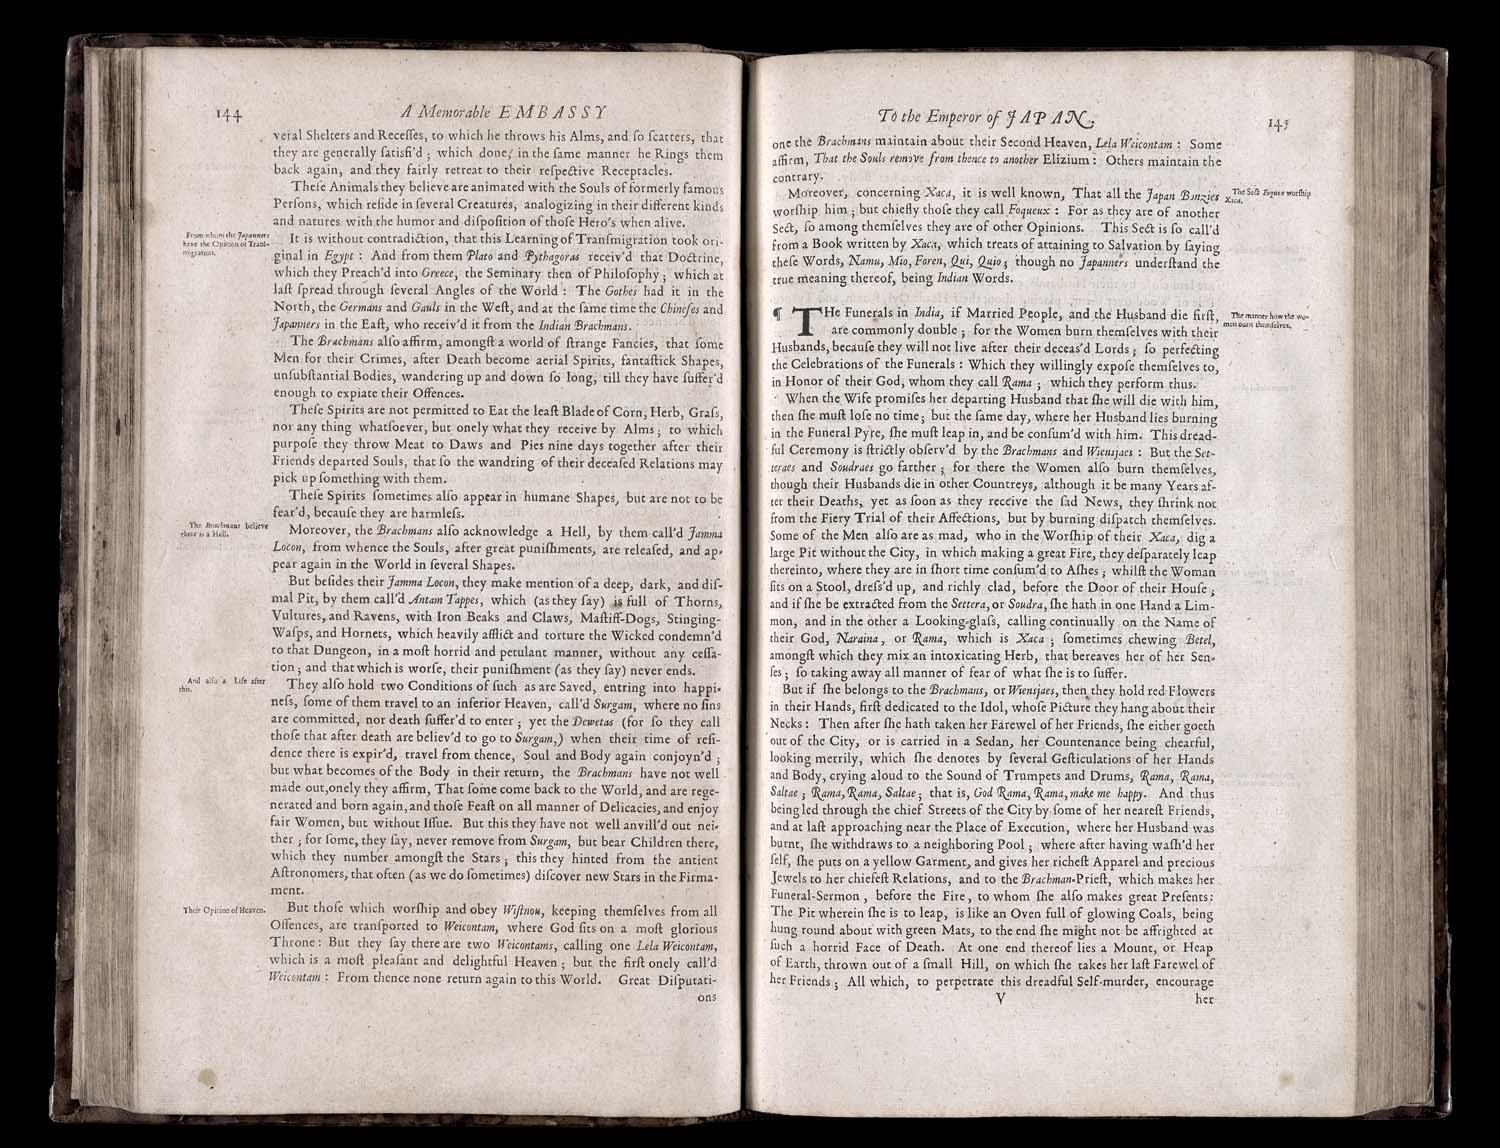 144
A Memorable EMBASSY
veral Shelters and Receſſes, to which he throws his Alms, and ſo ſcatters, that
they are generally ſatisfi'd ; which done, in the ſame manner he Rings them
back again, and they fairly retreat to their reſpective Receptacles.
Theſe Animals they believe are animated with the Souls of formerly famous
Perſons, which reſide in ſeveral Creatures, analogizing in their different kinds
and natures with the humor and diſpoſition of thoſe Hero's when alive.
From whom the Japanners
have the Opinion of Tranſ-
migration.
It is without contradiction, that this Learning of Tranſmigration took ori-
ginal in Egypt : And from them Plato and Pythagoras receiv'd that Doctrine,
which they Preach'd into Greece, the Seminary then of Philoſophy ; which at
laſt ſpread through ſeveral Angles of the World : The Gothes had it in the
North, the Germans and Gauls in the Weſt, and at the ſame time the Chineſes and
Japanners in the Eaſt, who receiv'd it from the Indian Brachmans.
The Brachmans alſo affirm, amongſt a world of ſtrange Fancies, that ſome
Men for their Crimes, after Death become aerial Spirits, fantaſtick Shapes,
unſubſtantial Bodies, wandering up and down ſo long, till they have ſuffer'd
enough to expiate their Offences.
Theſe Spirits are not permitted to Eat the leaſt Blade of Corn, Herb, Graſs,
nor any thing whatſoever, but onely what they receive by Alms ; to which
purpoſe they throw Meat to Daws and Pies nine days together after their
Friends departed Souls, that ſo the wandring of their deceaſed Relations may
pick up ſomething with them.
Theſe Spirits ſometimes alſo appear in humane Shapes, but are not to be
fear'd, becauſe they are harmleſs.
The Brachmans believe
there is a Hell.
Moreover, the Brachmans alſo acknowledge a Hell, by them call'd Jamma
Locon, from whence the Souls, after great puniſhments, are releaſed, and ap-
pear again in the World in ſeveral Shapes.
But beſides their Jamma Locon, they make mention of a deep, dark, and diſ-
mal Pit, by them call'd Antam Tappes, which (as they ſay) is full of Thorns,
Vultures, and Ravens, with Iron Beaks and Claws, Maſtiff-Dogs, Stinging-
Waſps, and Hornets, which heavily afflict and torture the Wicked condemn'd
to that Dungeon, in a moſt horrid and petulant manner, without any ceſſa-
tion ; and that which is worſe, their puniſhment (as they ſay) never ends.
And alſo a Life after
this.
They alſo hold two Conditions of ſuch as are Saved, entring into happi-
neſs, ſome of them travel to an inferior Heaven, call'd Surgam, where no ſins
are committed, nor death ſuffer'd to enter ; yet the Dewetas (for ſo they call
thoſe that after death are believ'd to go to Surgam,) when their time of reſi-
dence there is expir'd, travel from thence, Soul and Body again conjoyn'd ;
but what becomes of the Body in their return, the Brachmans have not well
made out, onely they affirm, That ſome come back to the World, and are rege-
nerated and born again, and thoſe Feaſt on all manner of Delicacies, and enjoy
fair Women, but without Iſſue. But this they have not well anvill'd out nei-
ther ; for ſome, they ſay, never remove from Surgam, but bear Children there,
which they number amongſt the Stars ; this they hinted from the antient
Aſtronomers, that often (as we do ſometimes) diſcover new Stars in the Firma-
ment.
Their Opinion of Heaven.
But thoſe which worſhip and obey Wiſtnou, keeping themſelves from all
Offences, are tranſported to Weicontam, where God ſits on a moſt glorious
Throne : But they ſay there are two Weicontams, calling one Lela Weicontam,
which is a moſt pleaſant and delightful Heaven ; but the firſt onely call'd
Weicontam : From thence none return again to this World. Great Diſputati-
ons
To the Emperor of JAPAN.
145
one the Brachmans maintain about their Second Heaven, Lela Weicontam : Some
affirm, That the Souls remove from thence to another Elizium : Others maintain the
contrary.
Moreover, concerning Xaca, it is well known, That all the Japan Bonzies
worſhip him ; but chiefly thoſe they call Foqueux : For as they are of another
Sect, ſo among themſelves they are of other Opinions. This Sect is ſo call'd
from a Book written by Xaca, which treats of attaining to Salvation by ſaying
theſe Words, Namu, Mio, Foren, Qui, Quio ; though no Japanners underſtand the
true meaning thereof, being Indian Words.
The Sect Foqueux worſhip
Xaca.
¶ THe Funerals in India, if Married People, and the Husband die firſt,
are commonly double ; for the Women burn themſelves with their
Husbands, becauſe they will not live after their deceas'd Lords ; ſo perfecting
the Celebrations of the Funerals : Which they willingly expoſe themſelves to,
in Honor of their God, whom they call Rama ; which they perform thus.
The manner how the wo-
men burn themſelves.
When the Wife promiſes her departing Husband that ſhe will die with him,
then ſhe muſt loſe no time ; but the ſame day, where her Husband lies burning
in the Funeral Pyre, ſhe muſt leap in, and be conſum'd with him. This dread-
ful Ceremony is ſtrictly obſerv'd by the Brachmans and Wiensjaes : But the Set-
teraes and Soudraes go farther ; for there the Women alſo burn themſelves,
though their Husbands die in other Countreys, although it be many Years af-
ter their Deaths, yet as ſoon as they receive the ſad News, they ſhrink not
from the Fiery Trial of their Affections, but by burning diſpatch themſelves.
Some of the Men alſo are as mad, who in the Worſhip of their Xaca, dig a
large Pit without the City, in which making a great Fire, they deſparately leap
thereinto, where they are in ſhort time conſum'd to Aſhes ; whilſt the Woman
ſits on a Stool, dreſs'd up, and richly clad, before the Door of their Houſe ;
and if ſhe be extracted from the Settera, or Soudra, ſhe hath in one Hand a Lim-
mon, and in the other a Looking-glaſs, calling continually on the Name of
their God, Naraina, or Rama, which is Xaca ; ſometimes chewing Betel,
amongſt which they mix an intoxicating Herb, that bereaves her of her Sen-
ſes ; ſo taking away all manner of fear of what ſhe is to ſuffer.
But if ſhe belongs to the Brachmans, or Wiensjaes, then they hold red Flowers
in their Hands, firſt dedicated to the Idol, whoſe Picture they hang about their
Necks : Then after ſhe hath taken her Farewel of her Friends, ſhe either goeth
out of the City, or is carried in a Sedan, her Countenance being chearful,
looking merrily, which ſhe denotes by ſeveral Geſticulations of her Hands
and Body, crying aloud to the Sound of Trumpets and Drums, Rama, Rama,
Saltae ; Rama, Rama, Saltae ; that is, God Rama, Rama, make me happy. And thus
being led through the chief Streets of the City by ſome of her neareſt Friends,
and at laſt approaching near the Place of Execution, where her Husband was
burnt, ſhe withdraws to a neighboring Pool ; where after having waſh'd her
ſelf, ſhe puts on a yellow Garment, and gives her richeſt Apparel and precious
Jewels to her chiefeſt Relations, and to the Brachman-Prieſt, which makes her
Funeral-Sermon, before the Fire, to whom ſhe alſo makes great Preſents:
The Pit wherein ſhe is to leap, is like an Oven full of glowing Coals, being
hung round about with green Mats, to the end ſhe might not be affrighted at
ſuch a horrid Face of Death. At one end thereof lies a Mount, or Heap
of Earth, thrown out of a ſmall Hill, on which ſhe takes her laſt Farewel of
her Friends ; All which, to perpetrate this dreadful Self-murder, encourage
V
her